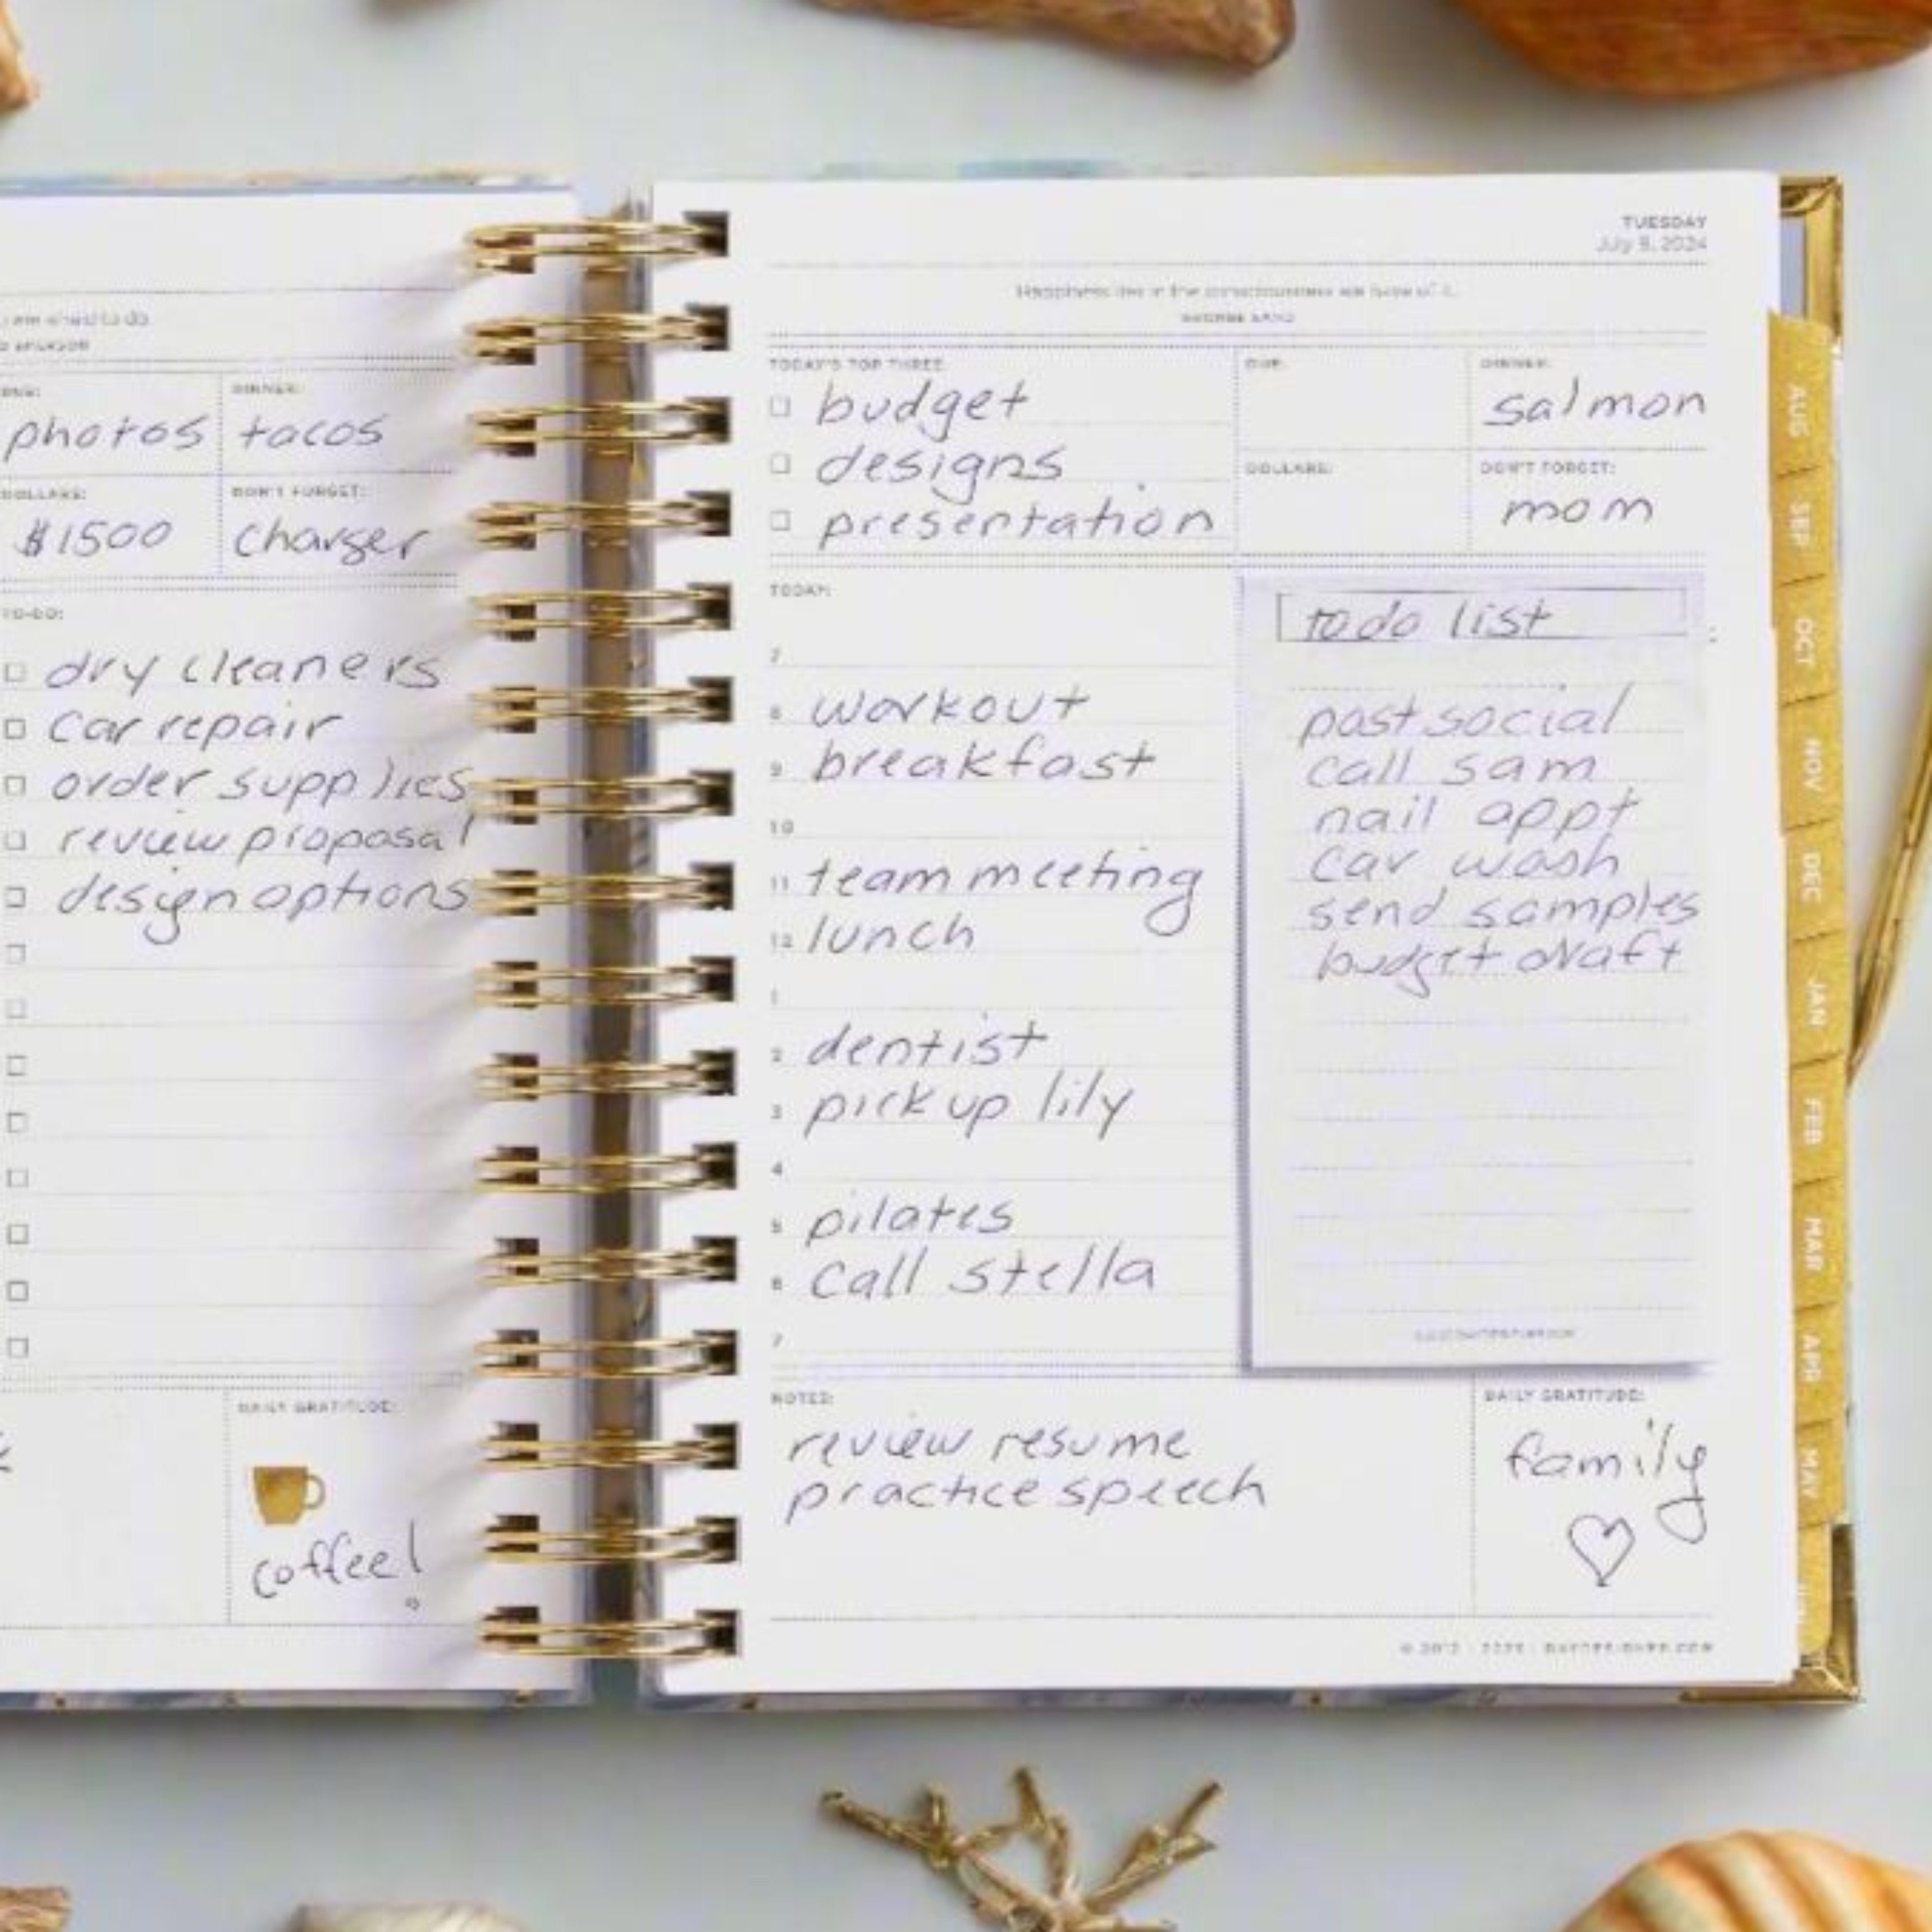 I are afraid to do.
DUE:
DINNER:
photos
tacos
DOLLARS:
DON'T FORGET:
$1500
charger
TO-DO:
dry cleaners
car repair
order supplies
review proposal
design options
DAILY GRATITUDE:
coffee!
TUESDAY
July 9, 2024
Happiness lies in the consciousness we have of it.
GEORGE SAND
TODAY'S TOP THREE:
budget
designs
presentation
DUE:
DINNER:
salmon
DOLLARS:
DON'T FORGET:
mom
TODAY:
7
8 workout
9 breakfast
10
11 team meeting
12 lunch
1
2 dentist
3 pick up lily
4
5 pilates
6 call stella
7
todo list
post social
call sam
nail appt
car wash
send samples
budget draft
NOTES:
review resume
practice speech
DAILY GRATITUDE:
family
AUG
SEP
OCT
NOV
DEC
JAN
FEB
MAR
APR
MAY